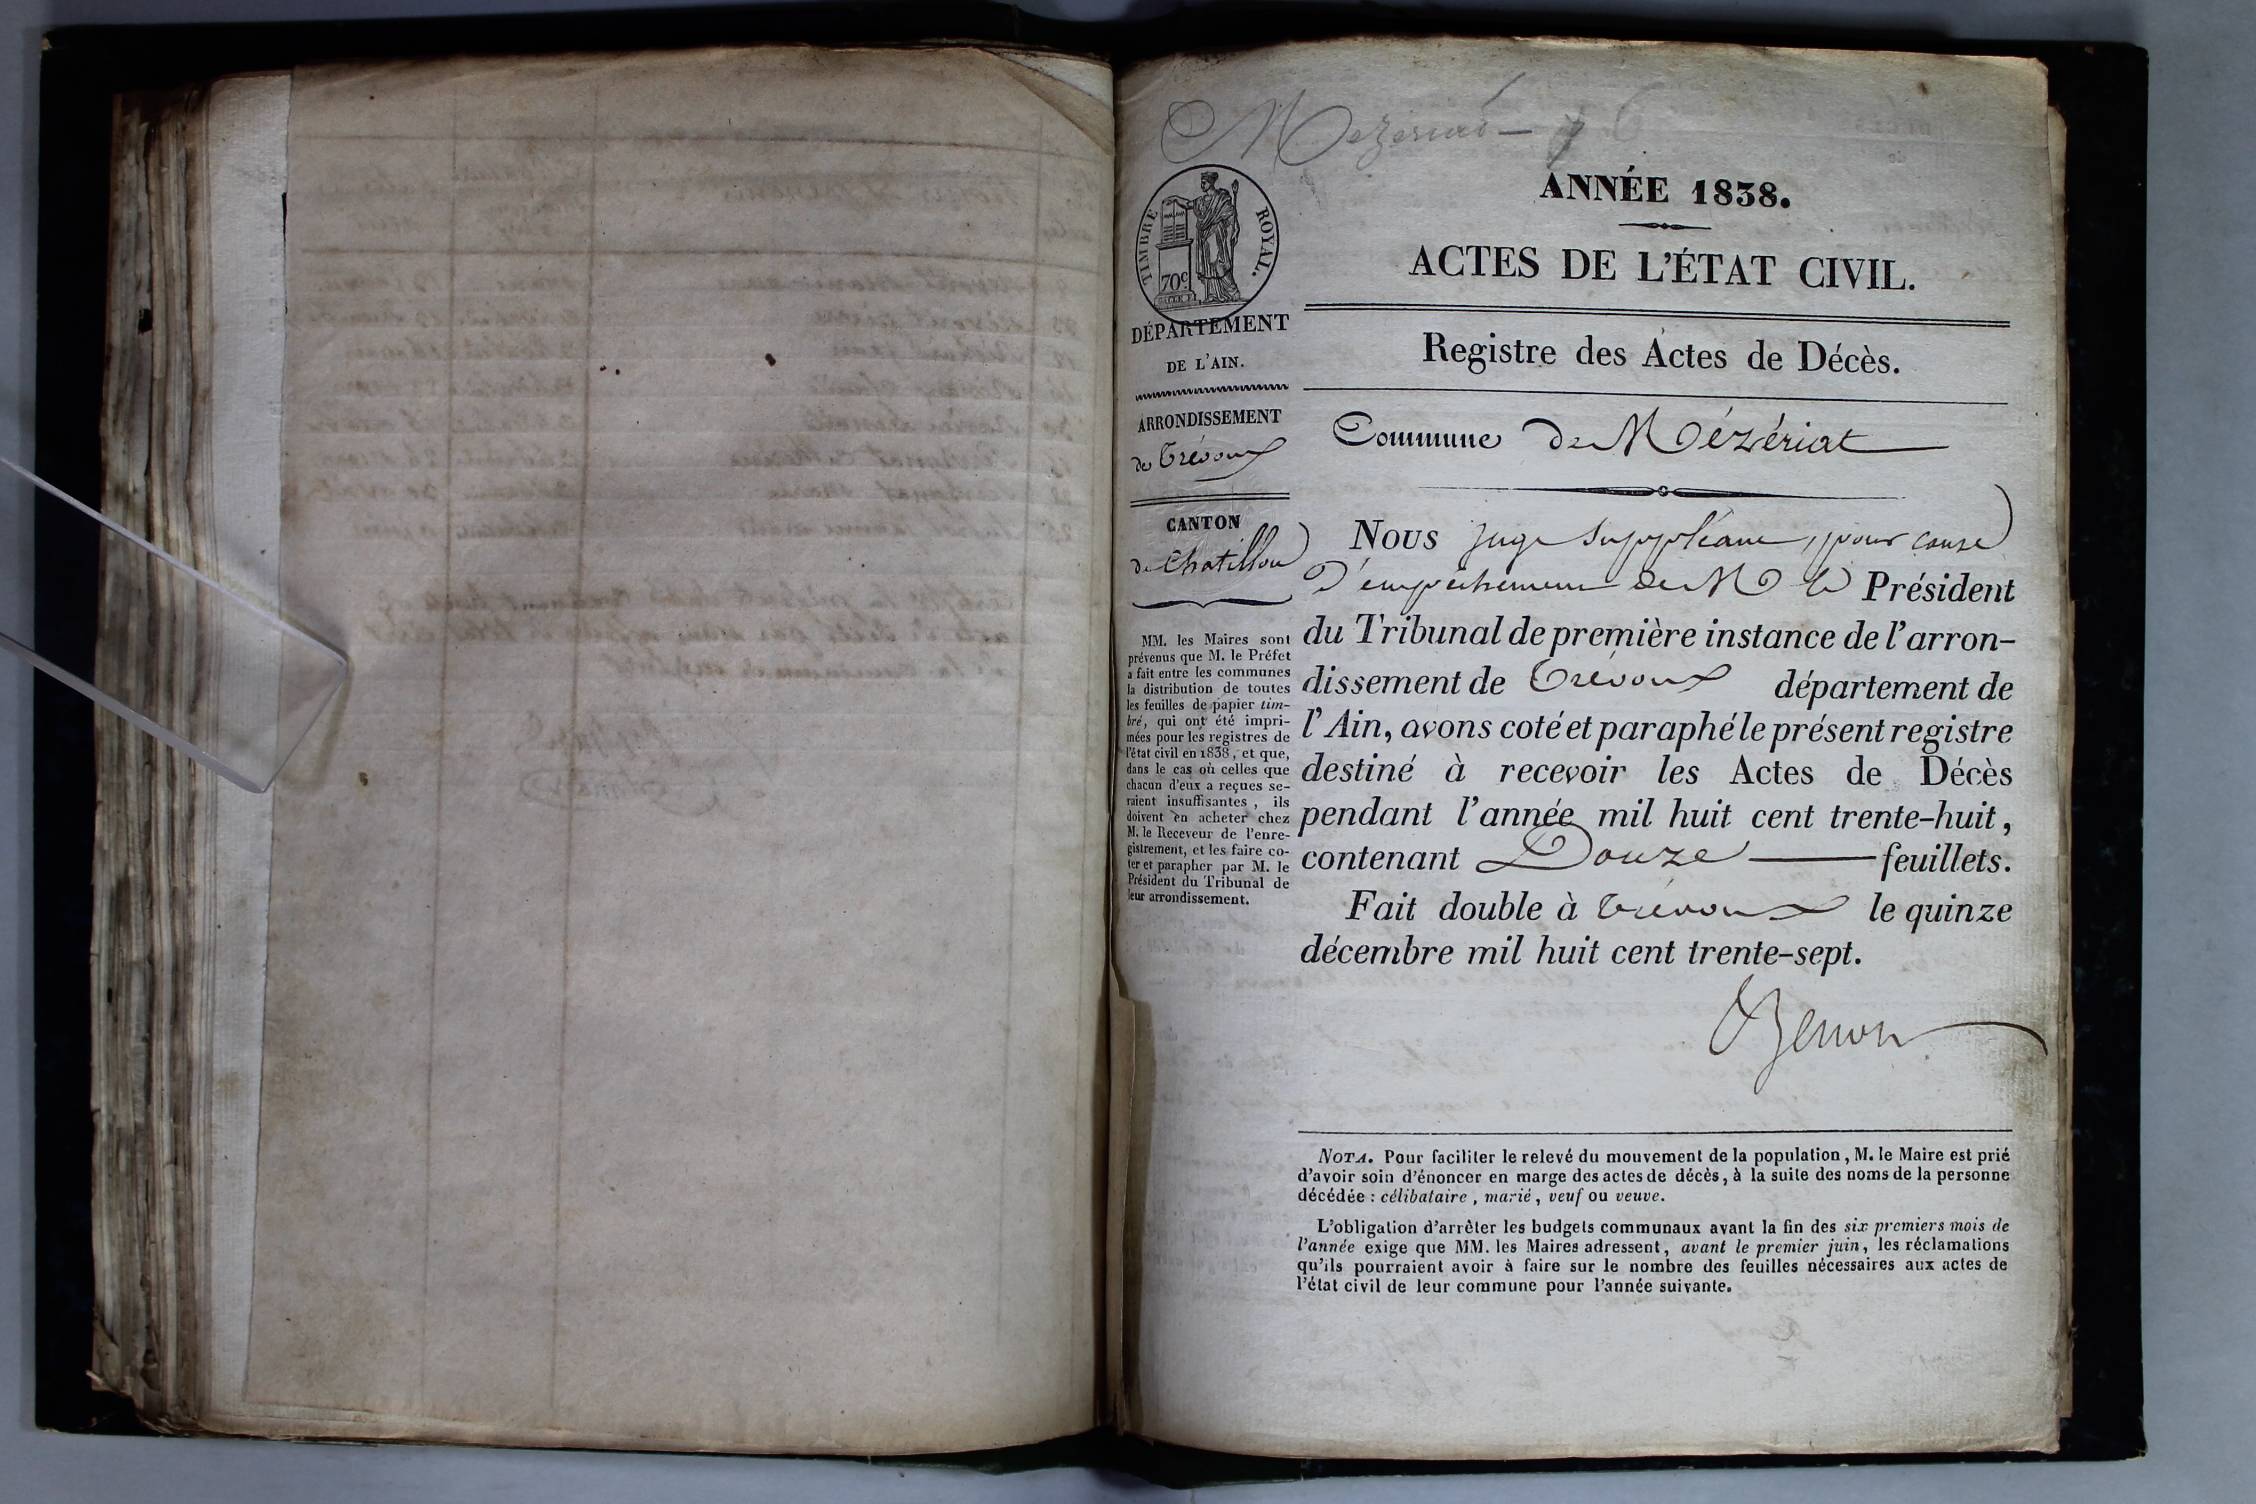 Mezeriat
ANNÉE 1838.
ACTES DE L'ÉTAT CIVIL.
Registre des Actes de Décès.
Commune de Mézériat
TIMBRE ROYAL.
70c
DÉPARTEMENT
DE L'AIN.
ARRONDISSEMENT
de Trévoux
CANTON
de Chatillon
MM. les Maires sont
prévenus que M. le Préfet
a fait entre les communes
la distribution de toutes
les feuilles de papier tim-
bré, qui ont été impri-
mées pour les registres de
l'état civil en 1838, et que,
dans le cas où celles que
chacun d'eux a reçues se-
raient insuffisantes, ils
doivent en acheter chez
M. le Receveur de l'enre-
gistrement, et les faire co-
ter et parapher par M. le
Président du Tribunal de
leur arrondissement.
Nous juge suppléant, pour cause
d'empêchement de M le Président
du Tribunal de première instance de l'arron-
dissement de Trévoux département de
l'Ain, avons coté et paraphé le présent registre
destiné à recevoir les Actes de Décès
pendant l'année mil huit cent trente-huit,
contenant Douze feuillets.
Fait double à Trévoux le quinze
décembre mil huit cent trente-sept.
NOTA. Pour faciliter le relevé du mouvement de la population, M. le Maire est prié
d'avoir soin d'énoncer en marge des actes de décès, à la suite des noms de la personne
décédée : célibataire, marié, veuf ou veuve.
L'obligation d'arrêter les budgets communaux avant la fin des six premiers mois de
l'année exige que MM. les Maires adressent, avant le premier juin, les réclamations
qu'ils pourraient avoir à faire sur le nombre des feuilles nécessaires aux actes de
l'état civil de leur commune pour l'année suivante.